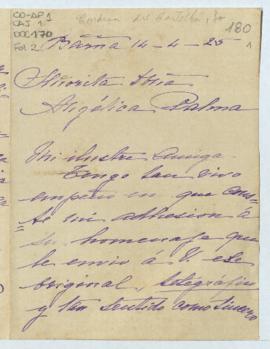 CO-AP1
CAJ 1
DOC 170
Fol 2
180
Barna 14-4-25
Señorita Doña
Angélica Palma
Mi ilustre amiga
Tengo tan vivo
empeño en que cons-
te mi adhesion á
su homenage que
le envio á V. ese
original, telegráfico
y tan sentido como sincero